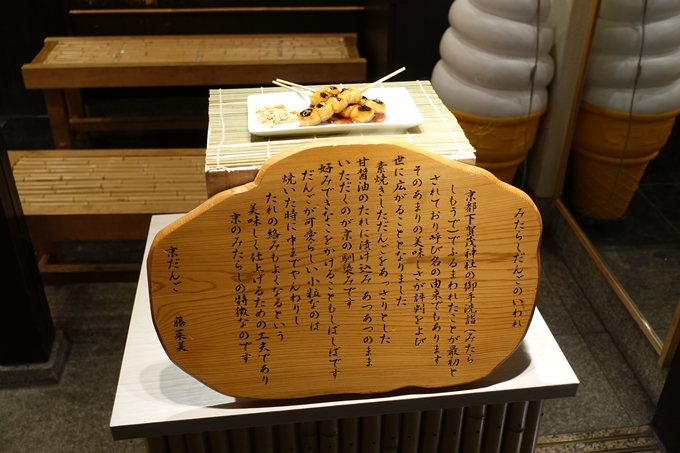 みたらしだんごのいわれ
京都下賀茂神社の御手洗詣(みたら
しもうで)でふるまわれたことが最初と
されており呼び名の由来でもあります
そのあまりの美味しさが評判をよび
世に広がることとなりました
素焼きしただんごをあっさりとした
甘醤油のたれに漬け込みあつあつのまま
いただくのが京の馴染みです
好みできなこをかけることもしばしばです
だんごが可愛らしい小粒なのは
焼いた時に中までやんわりし
たれの絡みもよくなるという
美味しく仕上げるための工夫であり
京のみたらしの特徴なのです
京だんご 藤菜美